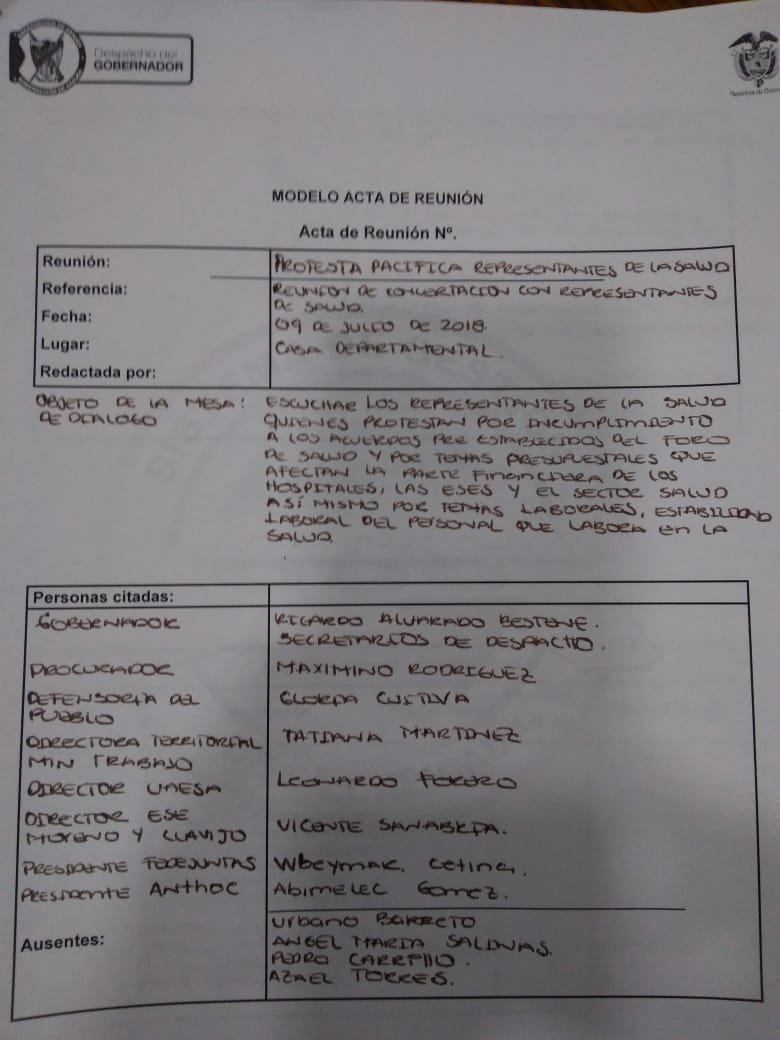 Despacho del
GOBERNADOR
República de Colom
MODELO ACTA DE REUNIÓN
Acta de Reunión Nº.
Reunión: PROTESTA PACIFICA REPRESENTANTES DE LA SALUD
Referencia: REUNION DE CONCERTACION CON REPRESENTANTES
DE SALUD.
Fecha: 09 DE JULIO DE 2018.
Lugar: CASA DEPARTAMENTAL.
Redactada por:
OBJETO DE LA MESA: ESCUCHAR LOS REPRESENTANTES DE LA SALUD
DE DIALOGO QUIENES PROTESTAN POR INCUMPLIMIENTO
A LOS ACUERDOS PRE ESTABLECIDOS DEL FORO
DE SALUD Y POR TEMAS PRESUPUESTALES QUE
AFECTAN LA PARTE FINANCIERA DE LOS
HOSPITALES, LAS ESES Y EL SECTOR SALUD
ASÍ MISMO POR TEMAS LABORALES, ESTABILIDAD
LABORAL DEL PERSONAL QUE LABORA EN LA
SALUD.
Personas citadas:
GOBERNADOR RICARDO ALVARADO BESTENE.
SECRETARIOS DE DESPACHO.
PROCURADOR MAXIMINO RODRIGUEZ
DEFENSORIA DEL GLORIA CUITIVA
PUEBLO
DIRECTORA TERRITORIAL TATIANA MARTINEZ
MIN TRABAJO
DIRECTOR UAESA LEONARDO FORERO
DIRECTOR ESE
MORENO Y CLAVIJO VICENTE SANABRIA.
PRESIDENTE FEDEJUNTAS Wbeymar. Cetina.
PRESIDENTE ANTHOC Abimelec Gomez.
Urbano BARRETO
Ausentes: ANGEL MARIA SALINAS.
PEDRO CARRILLO.
AZAEL TORRES.